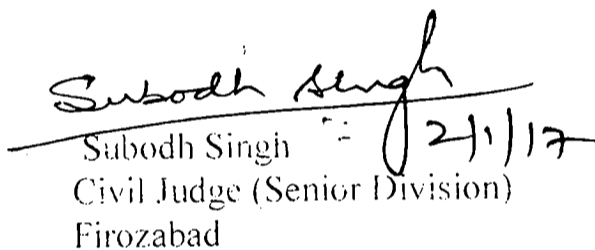 Subodh Singh
Subodh Singh 2/1/17
Civil Judge (Senior Division)
Firozabad